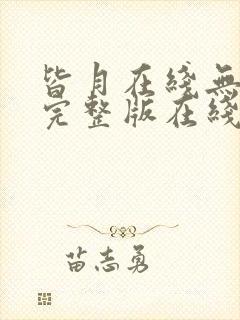 皆月在綫無
完整版在綫
苗志勇